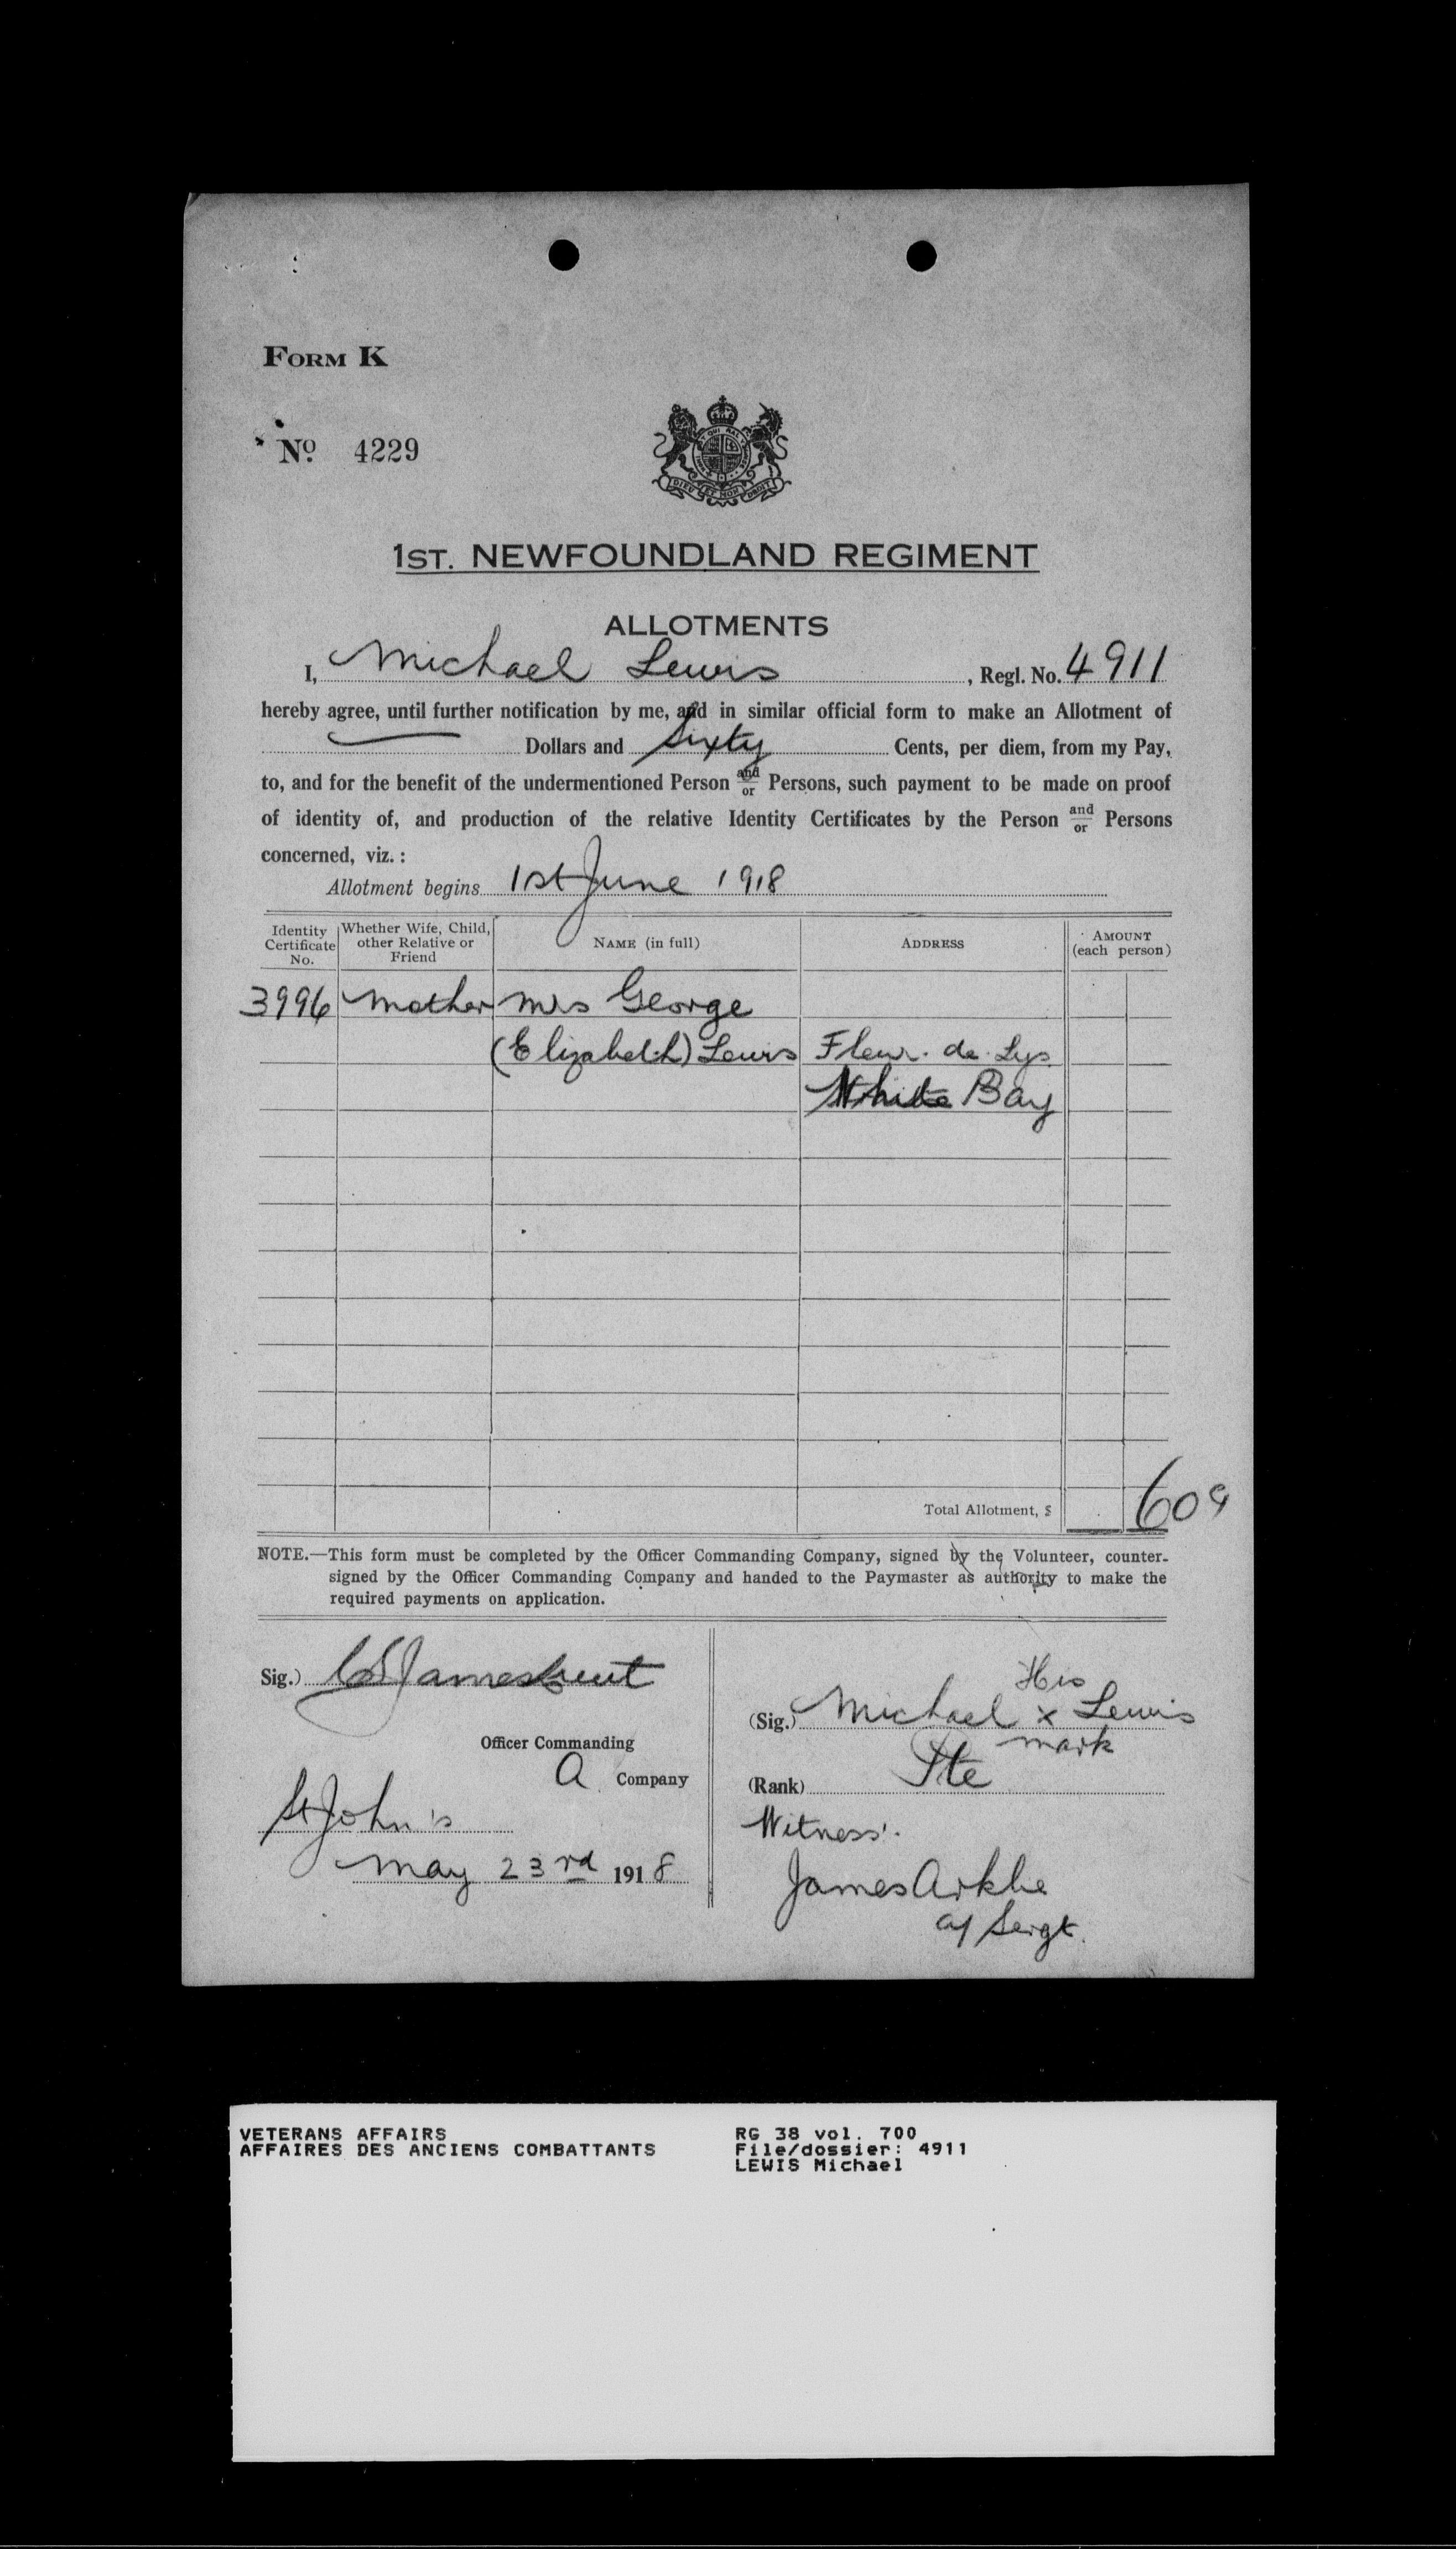 FORM K
No. 4229
1ST. NEWFOUNDLAND REGIMENT
ALLOTMENTS
I, Michael Lewis, Regl. No. 4911
hereby agree, until further notification by me, and in similar official form to make an Allotment of
Dollars and Sixty Cents, per diem, from my Pay,
to, and for the benefit of the undermentioned Person and/or Persons, such payment to be made on proof
of identity of, and production of the relative Identity Certificates by the Person and/or Persons
concerned, viz.:
Allotment begins 1st June 1918
Identity Certificate No. Whether Wife, Child, other Relative or Friend NAME (in full) ADDRESS AMOUNT (each person)
3996 Mother Mrs George
(Elizabeth) Lewis Fleur. de. Lys
White Bay
Total Allotment, $ 60
NOTE.—This form must be completed by the Officer Commanding Company, signed by the Volunteer, counter-
signed by the Officer Commanding Company and handed to the Paymaster as authority to make the
required payments on application.
Sig.)
Officer Commanding
A Company
St John's
May 23rd 1918
His
(Sig.) Michael x Lewis
mark
(Rank) Pte
Witness.
James
a/ Sergt.
VETERANS AFFAIRS
AFFAIRES DES ANCIENS COMBATTANTS
RG 38 vol. 700
File/dossier: 4911
LEWIS Michael